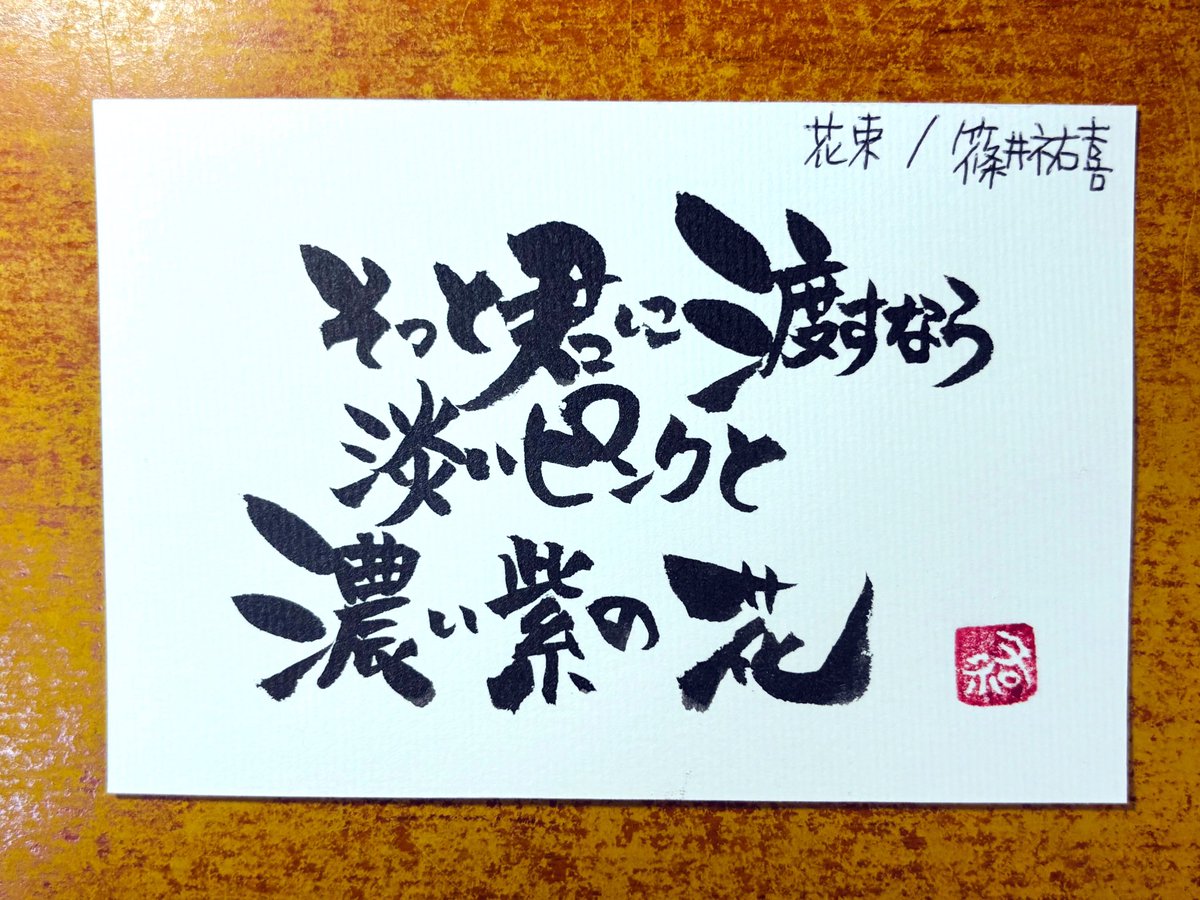 花束 / 篠井祐喜
そっと君に渡すなら
淡いピンクと
濃い紫の花